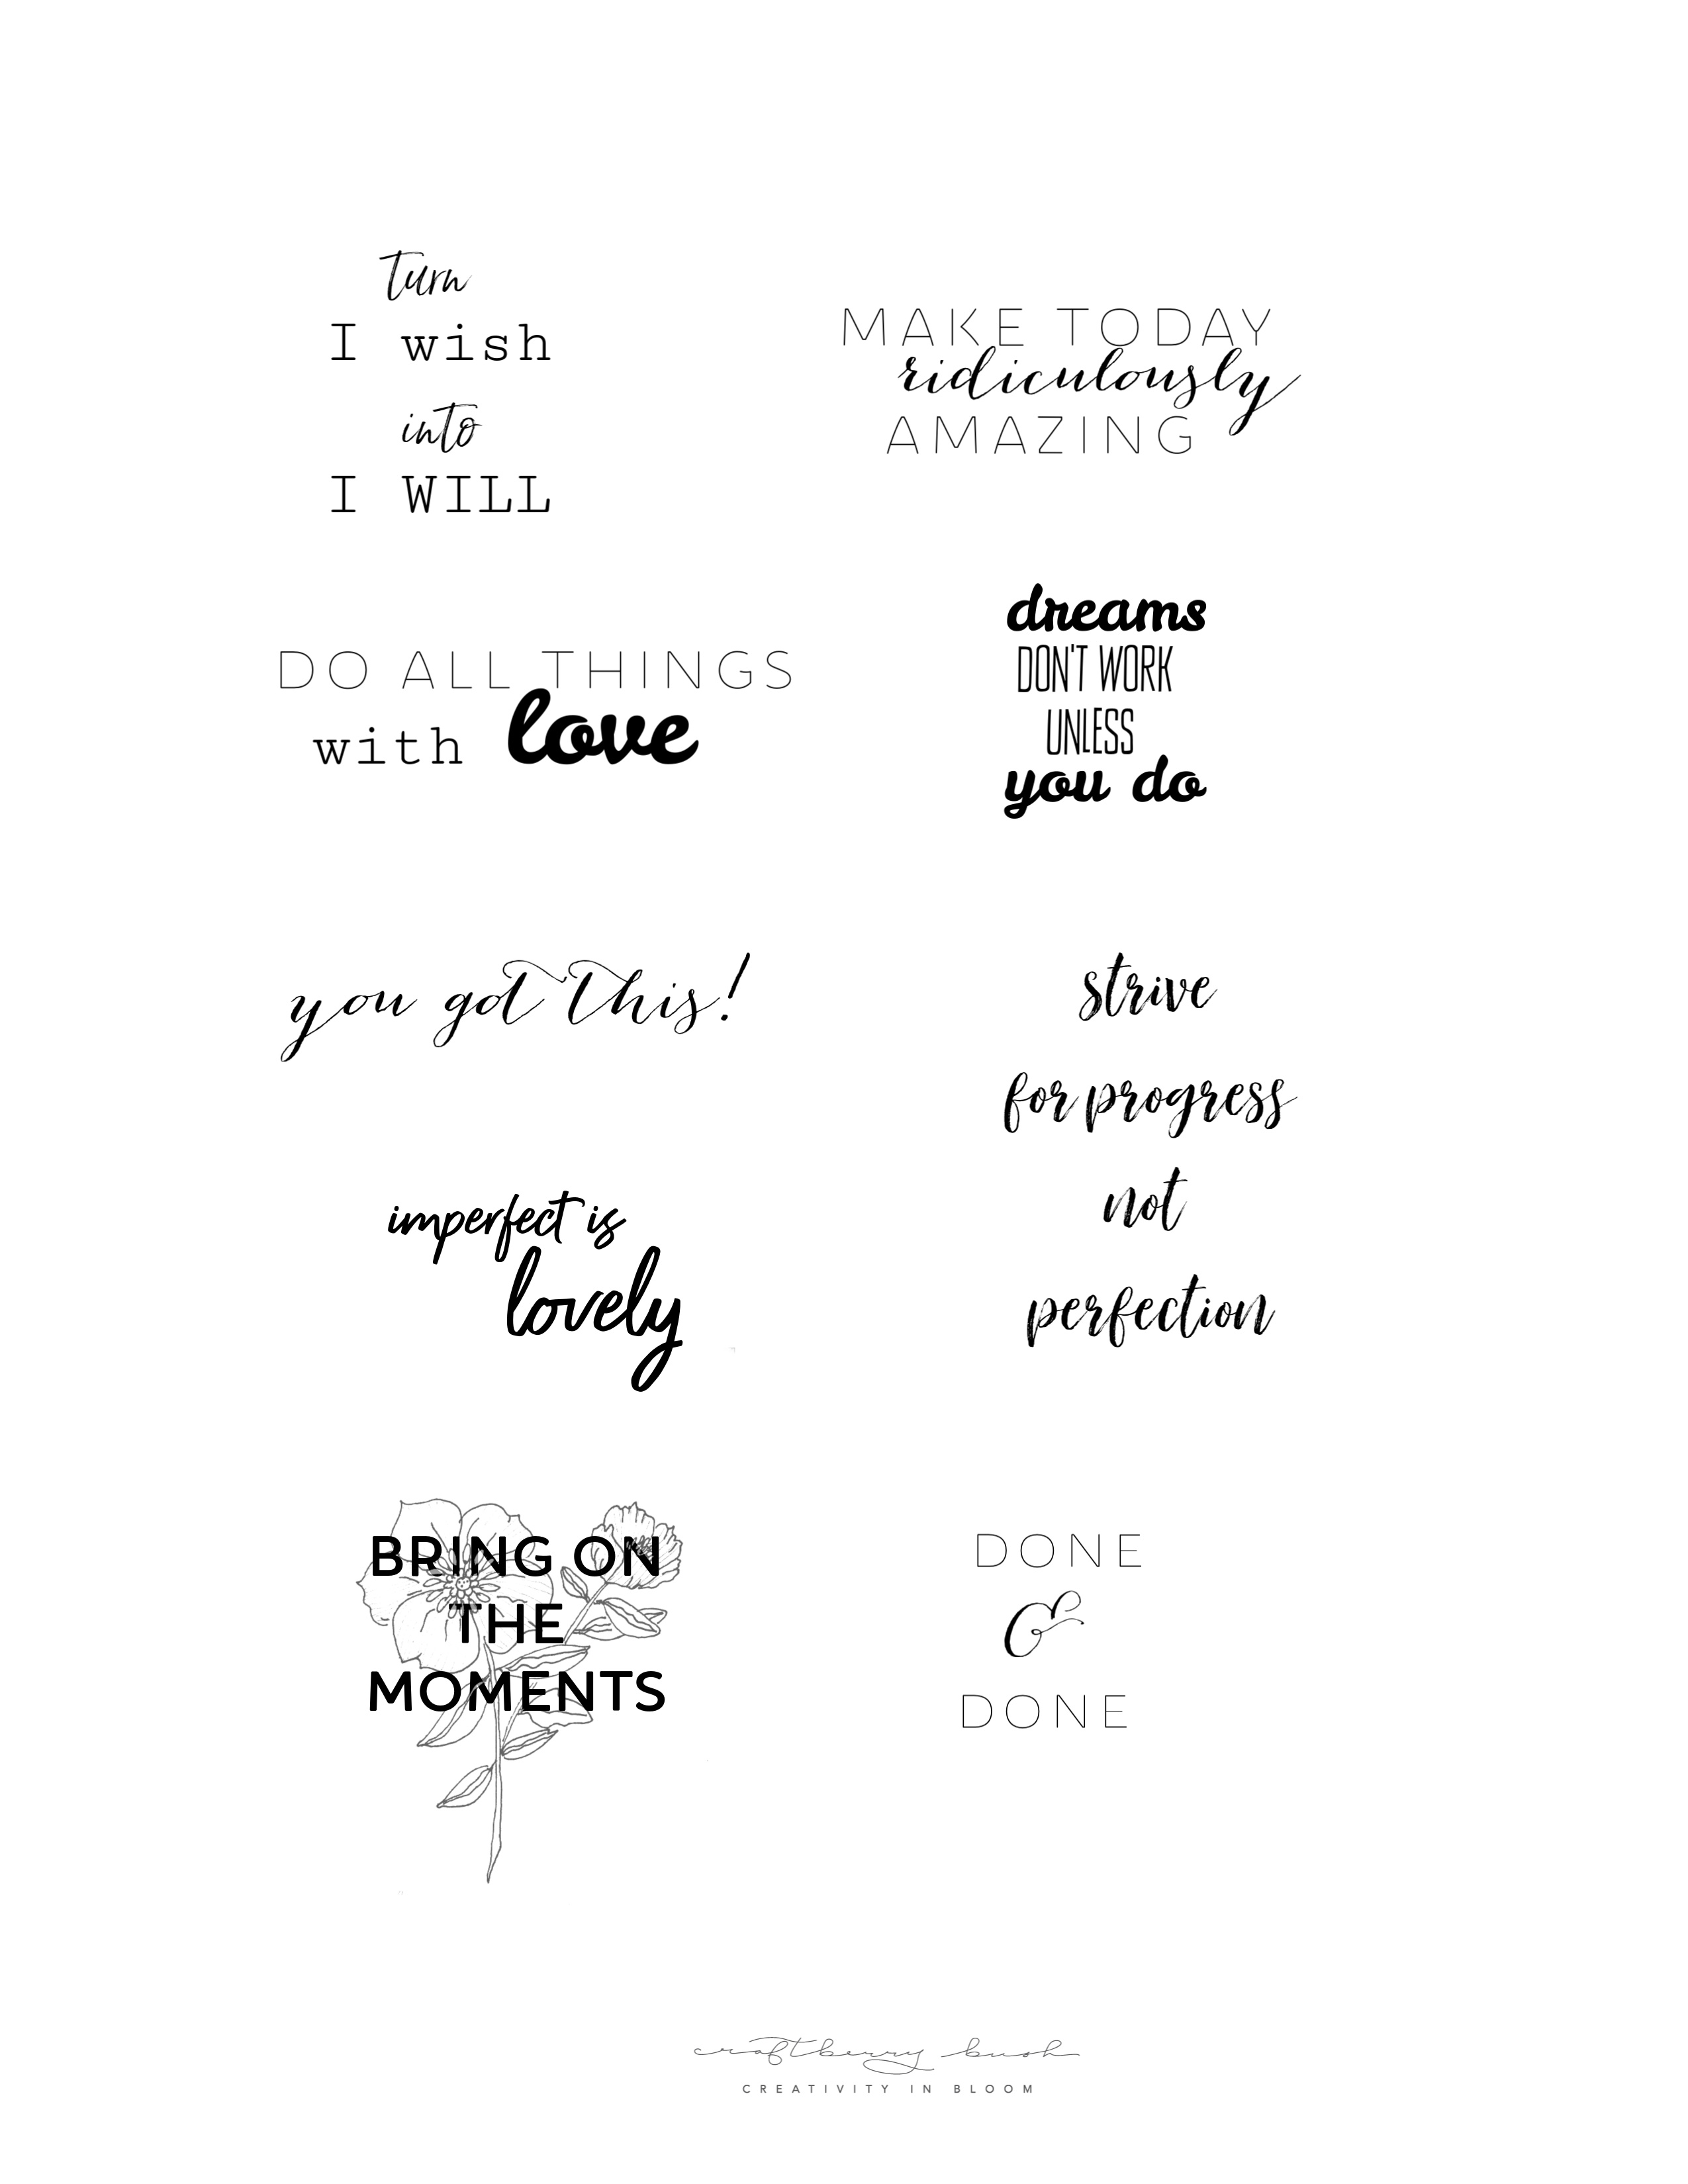 turn
I wish
into
I WILL
MAKE TODAY
ridiculously
AMAZING
DO ALL THINGS
with love
dreams
DON'T WORK
UNLESS
you do
you got this!
strive
for progress
not
perfection
imperfect is
lovely
BRING ON
THE
MOMENTS
DONE
&
DONE
craftberry bush
CREATIVITY IN BLOOM